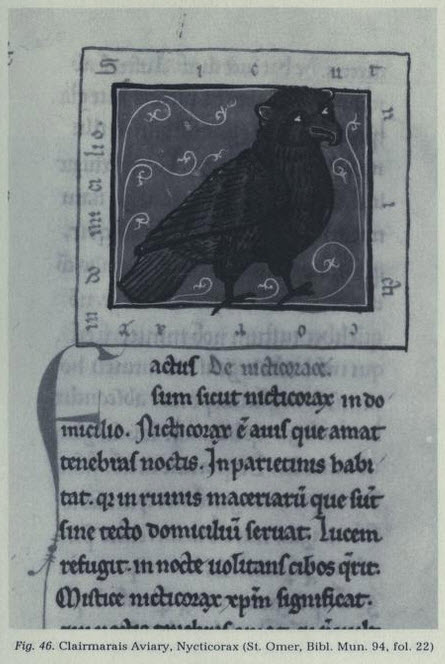 S i c u t
n i ch
c o r a x
in do mi ci lio.
actus De nicticorace.
sum sicut nicticorax in do
micilio. Nicticorax ē auis que amat
tenebras noctis. In parietinis habi
tat. qr in ruinis maceriarū que sūt
sine tecto domiciliū seruat. Lucem
refugit. in nocte uolitans cibos q̄rit.
Mistice nicticorax xp̄m significat.
Fig. 46. Clairmarais Aviary, Nycticorax (St. Omer, Bibl. Mun. 94, fol. 22)